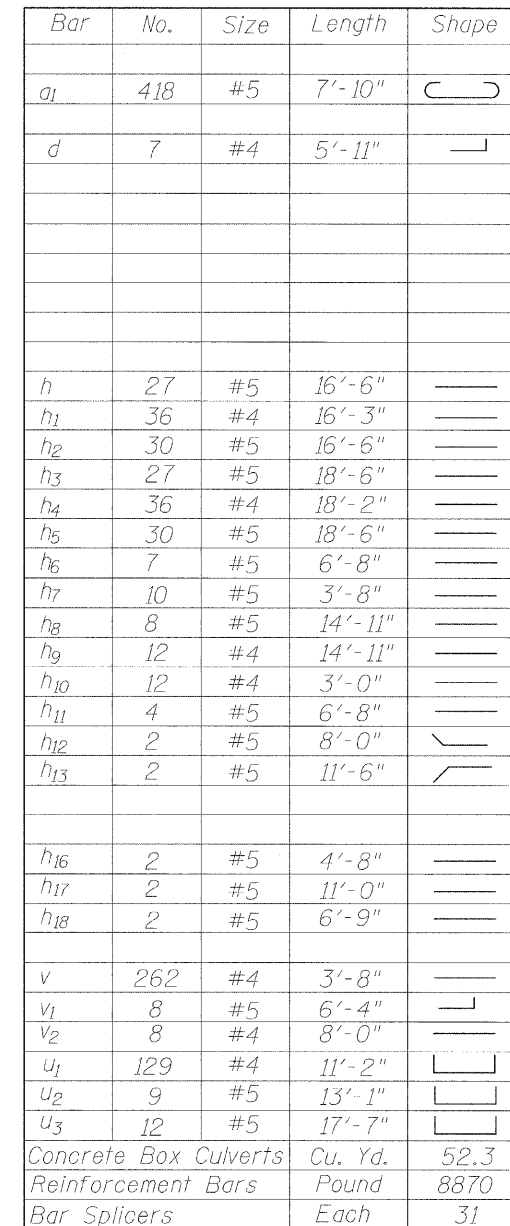 Bar No. Size Length Shape
a1 418 #5 7'-10"
d 7 #4 5'-11"
h 27 #5 16'-6"
h1 36 #4 16'-3"
h2 30 #5 16'-6"
h3 27 #5 18'-6"
h4 36 #4 18'-2"
h5 30 #5 18'-6"
h6 7 #5 6'-8"
h7 10 #5 3'-8"
h8 8 #5 14'-11"
h9 12 #4 14'-11"
h10 12 #4 3'-0"
h11 4 #5 6'-8"
h12 2 #5 8'-0"
h13 2 #5 11'-6"
h16 2 #5 4'-8"
h17 2 #5 11'-0"
h18 2 #5 6'-9"
v 262 #4 3'-8"
v1 8 #5 6'-4"
v2 8 #4 8'-0"
u1 129 #4 11'-2"
u2 9 #5 13'-1"
u3 12 #5 17'-7"
Concrete Box Culverts Cu. Yd. 52.3
Reinforcement Bars Pound 8870
Bar Splicers Each 31